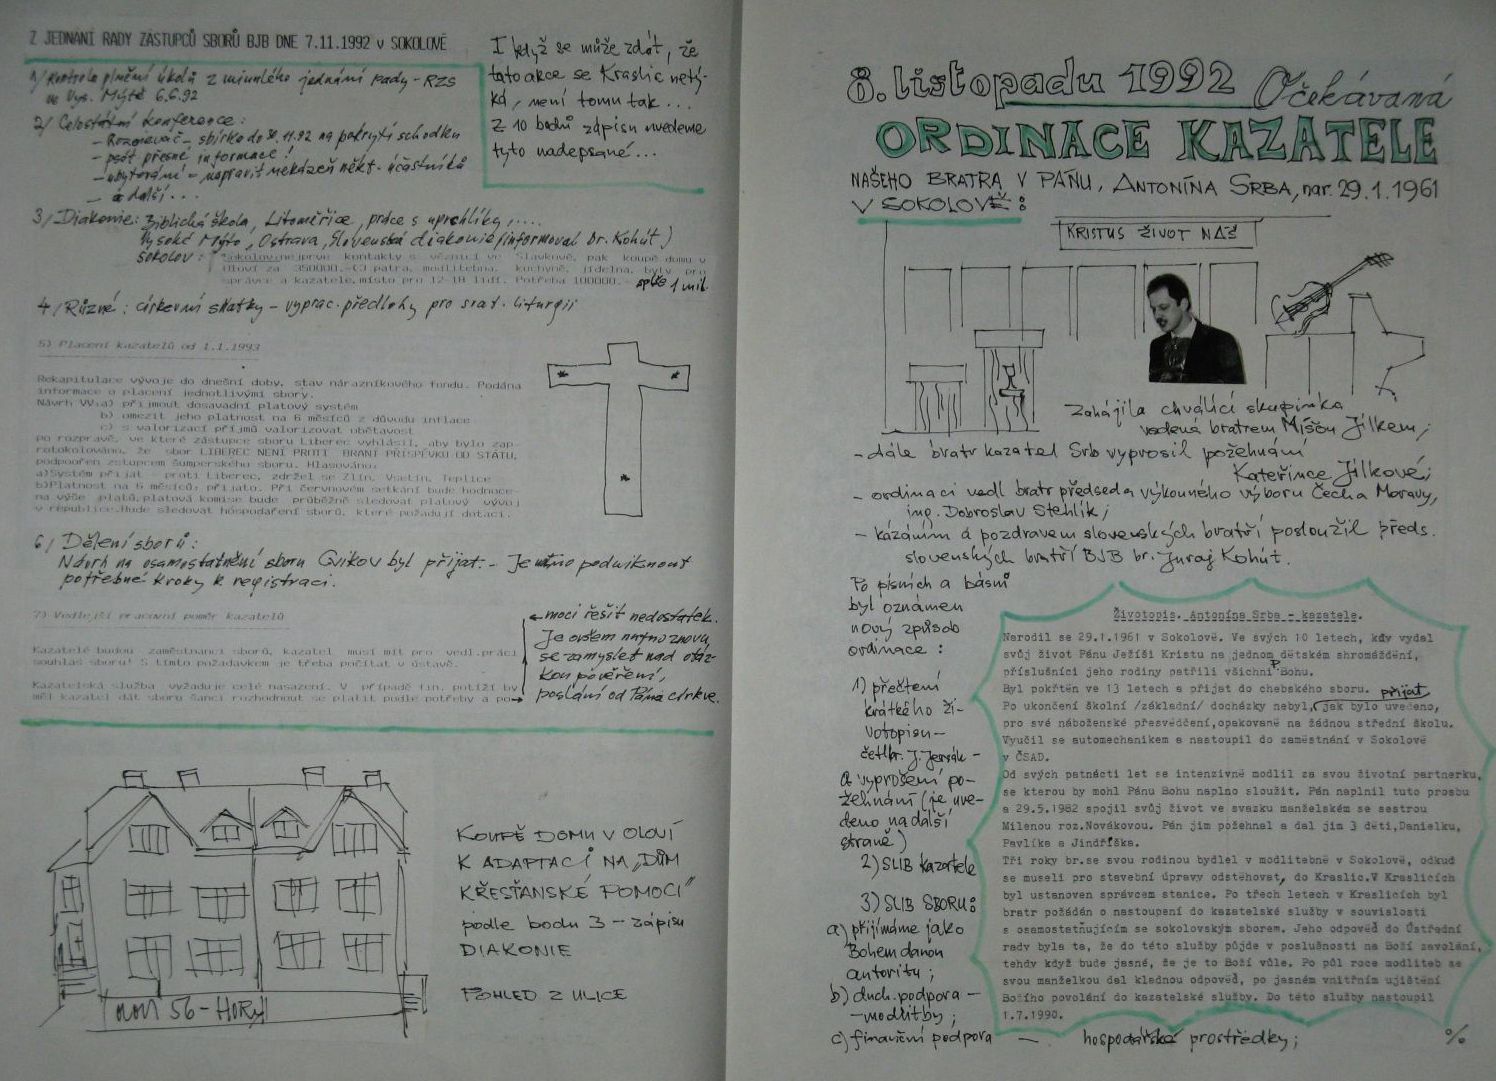 Z JEDNÁNÍ RADY ZÁSTUPCŮ SBORŮ BJB DNE 7.11.1992 v SOKOLOVĚ
1/ Kontrola plnění úkolů z minulého jednání Rady - RZS
ve Vys. Mýtě 6.6.92
2/ Celostátní konference:
- Rozdělovač - sbírka do 30.11.92 na pokrytí schodku
- psát přesné informace!
- ubytování - napravit nekázeň někt. účastníků
- a další...
3/ Diakonie: Biblická škola, Litoměřice, práce s uprchlíky,....
Vysoké Mýto, Ostrava, Slovenská diakonie (informoval br. Kohút)
SOKOLOV: Sokolov: nejprve kontakty s věznicí ve Slavkově, pak koupě domu v
Oloví za 350000.-(3 patra, modlitebna, kuchyně, jídelna, byty pro
správce a kazatele, místo pro 12-18 lidí. Potřeba 100000.- spíše 1 mil.
4/ Různé: církevní sňatky - vyprac. předlohy pro svat. liturgii
I když se může zdát, že
tato akce se Kraslic netý-
ká, není tomu tak...
Z 10 bodů zápisu uvedeme
tyto nadepsané...
5) Placení kazatelů od 1.1.1993
Rekapitulace vývoje do dnešní doby, stav nárazníkového fondu. Podána
informace o placení jednotlivými sbory.
Návrh VV:a) přijmout dosavadní platový systém
b) omezit jeho platnost na 6 měsíců z důvodu inflace
c) s valorizací příjmů valorizovat obětavost
po rozpravě, ve které zástupce sboru Liberec vyhlásil, aby bylo zap-
rotokolováno, že sbor LIBEREC NENÍ PROTI BRANÍ PŘÍSPĚVKU OD STÁTU,
podpořen zstupcem šumperského sboru. Hlasováno:
a)Systém přijat - proti Liberec, zdržel se Zlín, Vsetín, Teplice
b)Platnost na 6 měsíců, přijato. Při červnovém setkání bude hodnoce-
na výše platů,platová komise bude průběžně sledovat platový vývoj
v republice.Bude sledovat hospodaření sborů, které požadují dotaci.
6/ Dělení sborů:
Návrh na osamostatnění sboru Cvikov byl přijat. - Je nutno podniknout
potřebné kroky k registraci.
7) Vedlejší pracovní poměr kazatelů
Kazatelé budou zaměstnanci sborů, kazatel musí mít pro vedl.práci
souhlas sboru! S tímto požadavkem je třeba počítat v ústavě.
Kazatelská služba vyžaduje celé nasazení. V případě fin. potíží by
měl kazatel dát sboru šanci rozhodnout se platit podle potřeby a po-
moci řešit nedostatek.
Je ovšem nutno znovu
se zamyslet nad otáz-
kou pověření,
poslání od Pána církve.
KOUPĚ DOMU V OLOVÍ
K ADAPTACI NA „DŮM
KŘESŤANSKÉ POMOCI"
podle bodu 3 - zápisu
DIAKONIE
POHLED Z ULICE
56 - HORY
8. listopadu 1992 Očekávaná
ORDINACE KAZATELE
NAŠEHO BRATRA V PÁNU, ANTONÍNA SRBA, nar. 29.1.1961
V SOKOLOVĚ:
KRISTUS ŽIVOT NÁŠ
Zahájila chválící skupinka
vedená bratrem Míšou Jílkem;
- dále bratr kazatel Srb vyprosil požehnání
Kateřince Jílkové;
- ordinaci vedl bratr předseda výkonného výboru Čech a Moravy,
ing. Dobroslav Stehlík;
- kázáním a pozdravem slovenských bratří posloužil předs.
slovenských bratří BJB br. Juraj Kohút.
Po písních a básni
byl oznámen
nový způsob
ordinace:
1) přečtení
krátkého ži-
votopisu -
četl br. J.
a vyprošení po-
žehnání (je uve-
deno na další
straně)
2) SLIB kazatele
3) SLIB SBORU:
a) přijímáme jako
Bohem danou
autoritu;
b) duch. podpora -
- modlitby;
c) finanční podpora — hospodářské prostředky;
Životopis. Antonína Srba - kazatele.
Narodil se 29.1.1961 v Sokolově. Ve svých 10 letech, kdy vydal
svůj život Pánu Ježíši Kristu na jednom dětském shromáždění,
příslušníci jeho rodiny patřili všichni P. Bohu.
Byl pokřtěn ve 13 letech a přijat do chebského sboru.
Po ukončení školní /základní/ docházky nebyl, jak bylo uvedeno, přijat
pro své náboženské přesvědčení,opakovaně na žádnou střední školu.
Vyučil se automechanikem a nastoupil do zaměstnání v Sokolově
v ČSAD.
Od svých patnácti let se intenzivně modlil za svou životní partnerku,
se kterou by mohl Pánu Bohu naplno sloužit. Pán naplnil tuto prosbu
a 29.5.1982 spojil svůj život ve svazku manželském se sestrou
Milenou roz.Novákovou. Pán jim požehnal a dal jim 3 děti,Danielku,
Pavlíka a Jindříška.
Tři roky br.se svou rodinou bydlel v modlitebně v Sokolově, odkud
se museli pro stavební úpravy odstěhovat, do Kraslic.V Kraslicích
byl ustanoven správcem stanice. Po třech letech v Kraslicích byl
bratr požádán o nastoupení do kazatelské služby v souvislosti
s osamostatňujícím se sokolovským sborem. Jeho odpověď do Ústřední
rady byla ta, že do této služby půjde v poslušnosti na Boží zavolání,
tehdy když bude jasné, že je to Boží vůle. Po půl roce modliteb se
svou manželkou dal kladnou odpověď, po jasném vnitřním ujištění
Božího povolání do kazatelské služby. Do této služby nastoupil
1.7.1990.
%